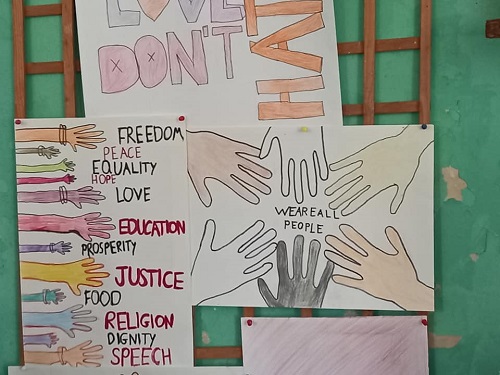 LOVE
DON'T
HAT
FREEDOM
PEACE
EQUALITY
HOPE
LOVE
EDUCATION
PROSPERITY
JUSTICE
FOOD
RELIGION
DIGNITY
SPEECH
WE ARE ALL
PEOPLE